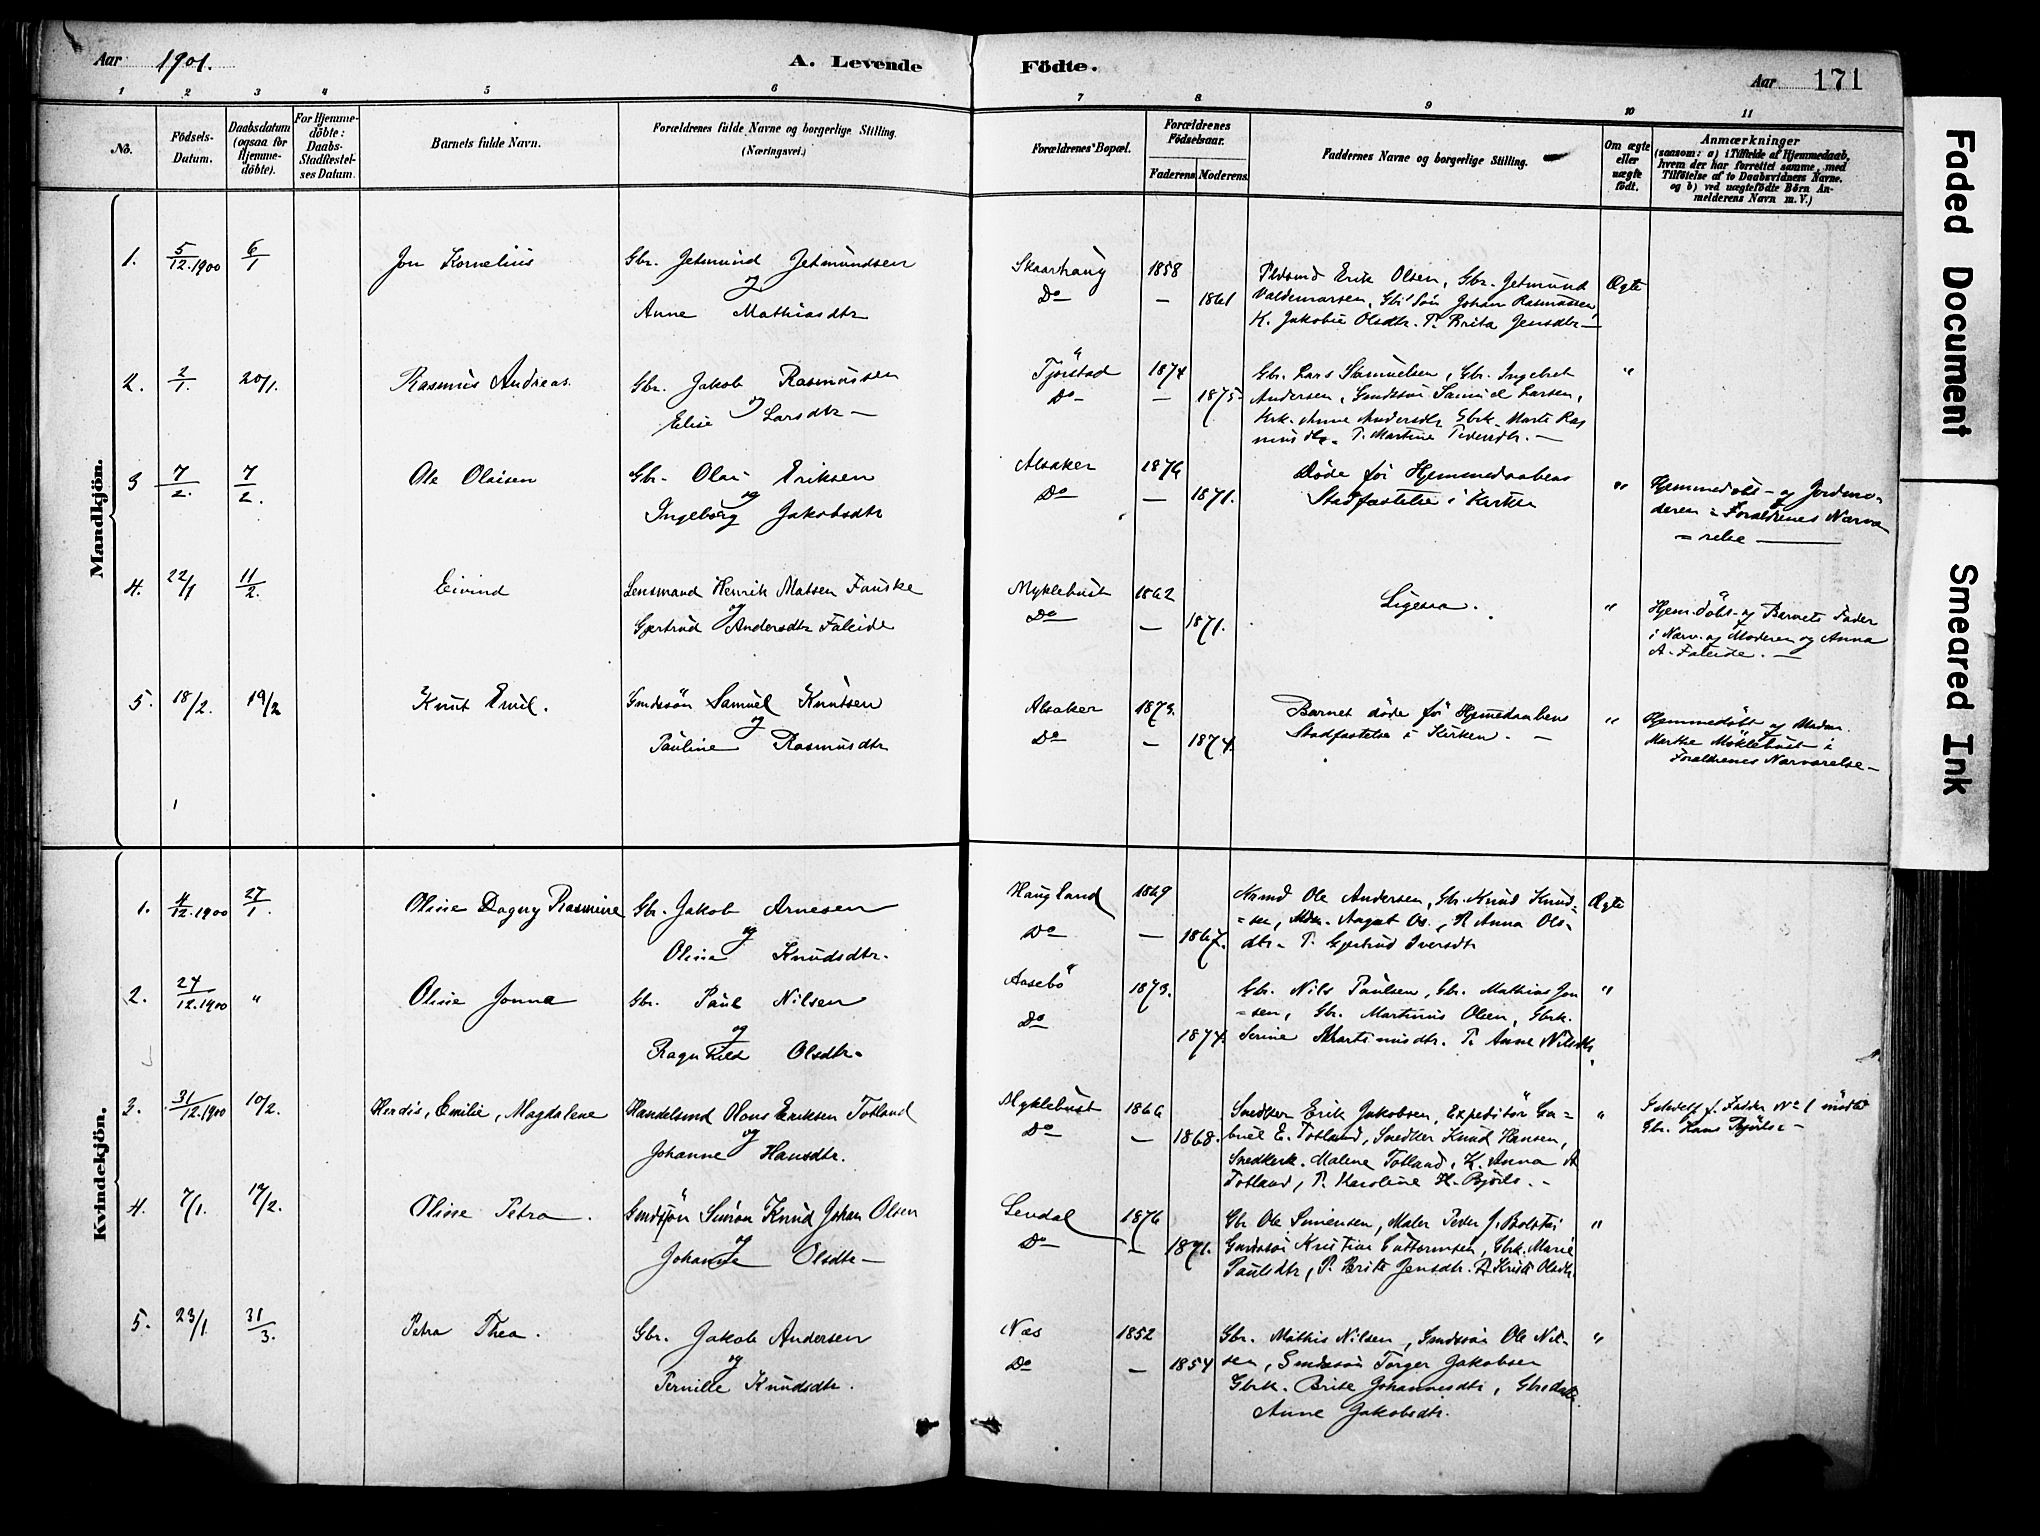 Aar 1901. A. Levende Födte. Aar 171
1 2 3 4 5 6 7 8 9 10 11
No.
Födsels-Datum.
Daabsdatum (ogsaa for Hjemme-döbte).
For Hjemme-döbte: Daabs-Stadfæstel-ses Datum.
Barnets fulde Navn.
Forældrenes fulde Navne og borgerlige Stilling.
(Næringsvei.)
Forældrenes Bopæl.
Forældrenes Födselsaar.
Faderens Moderens.
Faddernes Navne og borgerlige Stilling.
Om ægte eller uægte födt.
Anmærkninger
(saasom: a) i Tilfælde af Hjemmedaab,
hvem der har forrettet samme, med
Tilföielse af to Daabsvidners Navne.
og b) ved uægtefödte Börn An-
melderens Navn m.V.)
Mandkjön.
1. 5/12.1900 6/1 Jon Kornelius Gbr. Jetmund Jetmundsen
og
Anne Mathiasdtr
Skaarhaug 1858
Do — 1861
Erik Olsen, Gbr. Jetmund
Valdemarsen, Gbr Søn Johan Rasmussen,
K. Jakobie Olsdtr. P. Brita Jensdtr —
Ægte
2. 2/1. 20/1. Rasmus Andreas. Gbr. Jakob Rasmussen
og
Elise Larsdtr —
Tjørstad 1874
Do — 1875.
Gbr. Lars Samuelsen, Gbr. Ingebret
Andersen, Gmdssøn Samuel Larsen,
Anne Andersdtr Gbrk. Marte Ras
musdtr. P. Martine Pedersdtr. —
"
3 7/2. 7/2. Ole Olaisen Gbr. Olai Eriksen
og
Ingeborg Jakobsdtr
Alsaker 1876
Do — 1871.
Døde før Hjemmedaabens
Stadfæstelse i Kirken
"
Hjemmedøbt - og Jordmo-
deren i Forældrenes Nærvæ
= relse —
4. 22/1 11/2. Eivind Lensmand Henrik Matsen Fauske
og
Gjertrud Andersdtr Faleide
Myklebust 1862
Do — 1871.
Ligesaa.
"
Hjem.døbt - og Barnets Fader
i Nærv. og Moderen og Anna
A. Faleide. —
5. 18/2. 19/2 Knut Emil. Gmdssøn Samuel Knutsen
og
Pauline Rasmusdtr
Alsaker 1873.
Do — 1874.
Barnet døde før Hjemmedaabens
Stadfæstelse i Kirken. —
"
Hjemmedøbt og Madm.
Marthe Möklebust i
Forældrenes Nærværelse —
Kvindekjön.
1. 4/12.1900 27/1. Oline Dagny Rasmine Gbr. Jakob Arnesen
og
Oline Knudsdtr.
Haugland 1869
Do — 1867.
Ole Andersen, Gbr. Knud Knud=
=sen, August Os., P. Anna Ols=
dtr. P. Gjertrud Iversdtr
Ægte
2. 27/12.1900 " Oline Jonna Gbr. Paul Nilsen
og
Ragnhild Olsdtr.
Aasebø 1873.
Do 1874.
Gbr. Nils Paulsen, Gbr. Mathias Jon
=sen, Gbr. Martinus Olsen, Gbrk.
Serine Martinusdtr. P. Anne Nilsdtr.
"
3. 31/12.1900 10/2. Herdis, Emilie, Magdalene Handelsmd Olous Eriksen Totland
og
Johanne Hansdtr.
Myklebust 1866
Do — 1868.
Snedker Erik Jakobsen, Expeditør Ga=
briel E. Totland, Snedker Knud Hansen,
Snedkerk. Malene Totland, K. Anna A
Totland, P. Karoline H. Bjørlo. —
"
f. Fadder No 1 mødte
Gbr. Hans Bjørlo —
4. 7/1. 17/2. Oline Petra. Gmdssøn Simon Knud Johan Olsen
og
Johanne Olsdtr —
Levdal 1876
Do — 1871.
Gbr Ole Simensen, Maler Peder J. Bolstai
Gmdssøn Kristian Guttormsen, Gbrk. Marie
Paulsdtr, P. Brite Jensdtr. P Kristi Olsdtr.
"
5. 23/1 31/3. Petra Thea. Gbr. Jakob Andersen
og
Pernille Knudsdtr.
Næs 1852
Do — 1854
Gbr. Mathis Nilsen, Gmdssøn Ole Nil-
sen, Gmdssøn Torger Jakobsen
Gbrk. Brite Johannesdtr, Gbrdatr.
Anne Jakobsdtr.
"
Faded Document
Smeared Ink